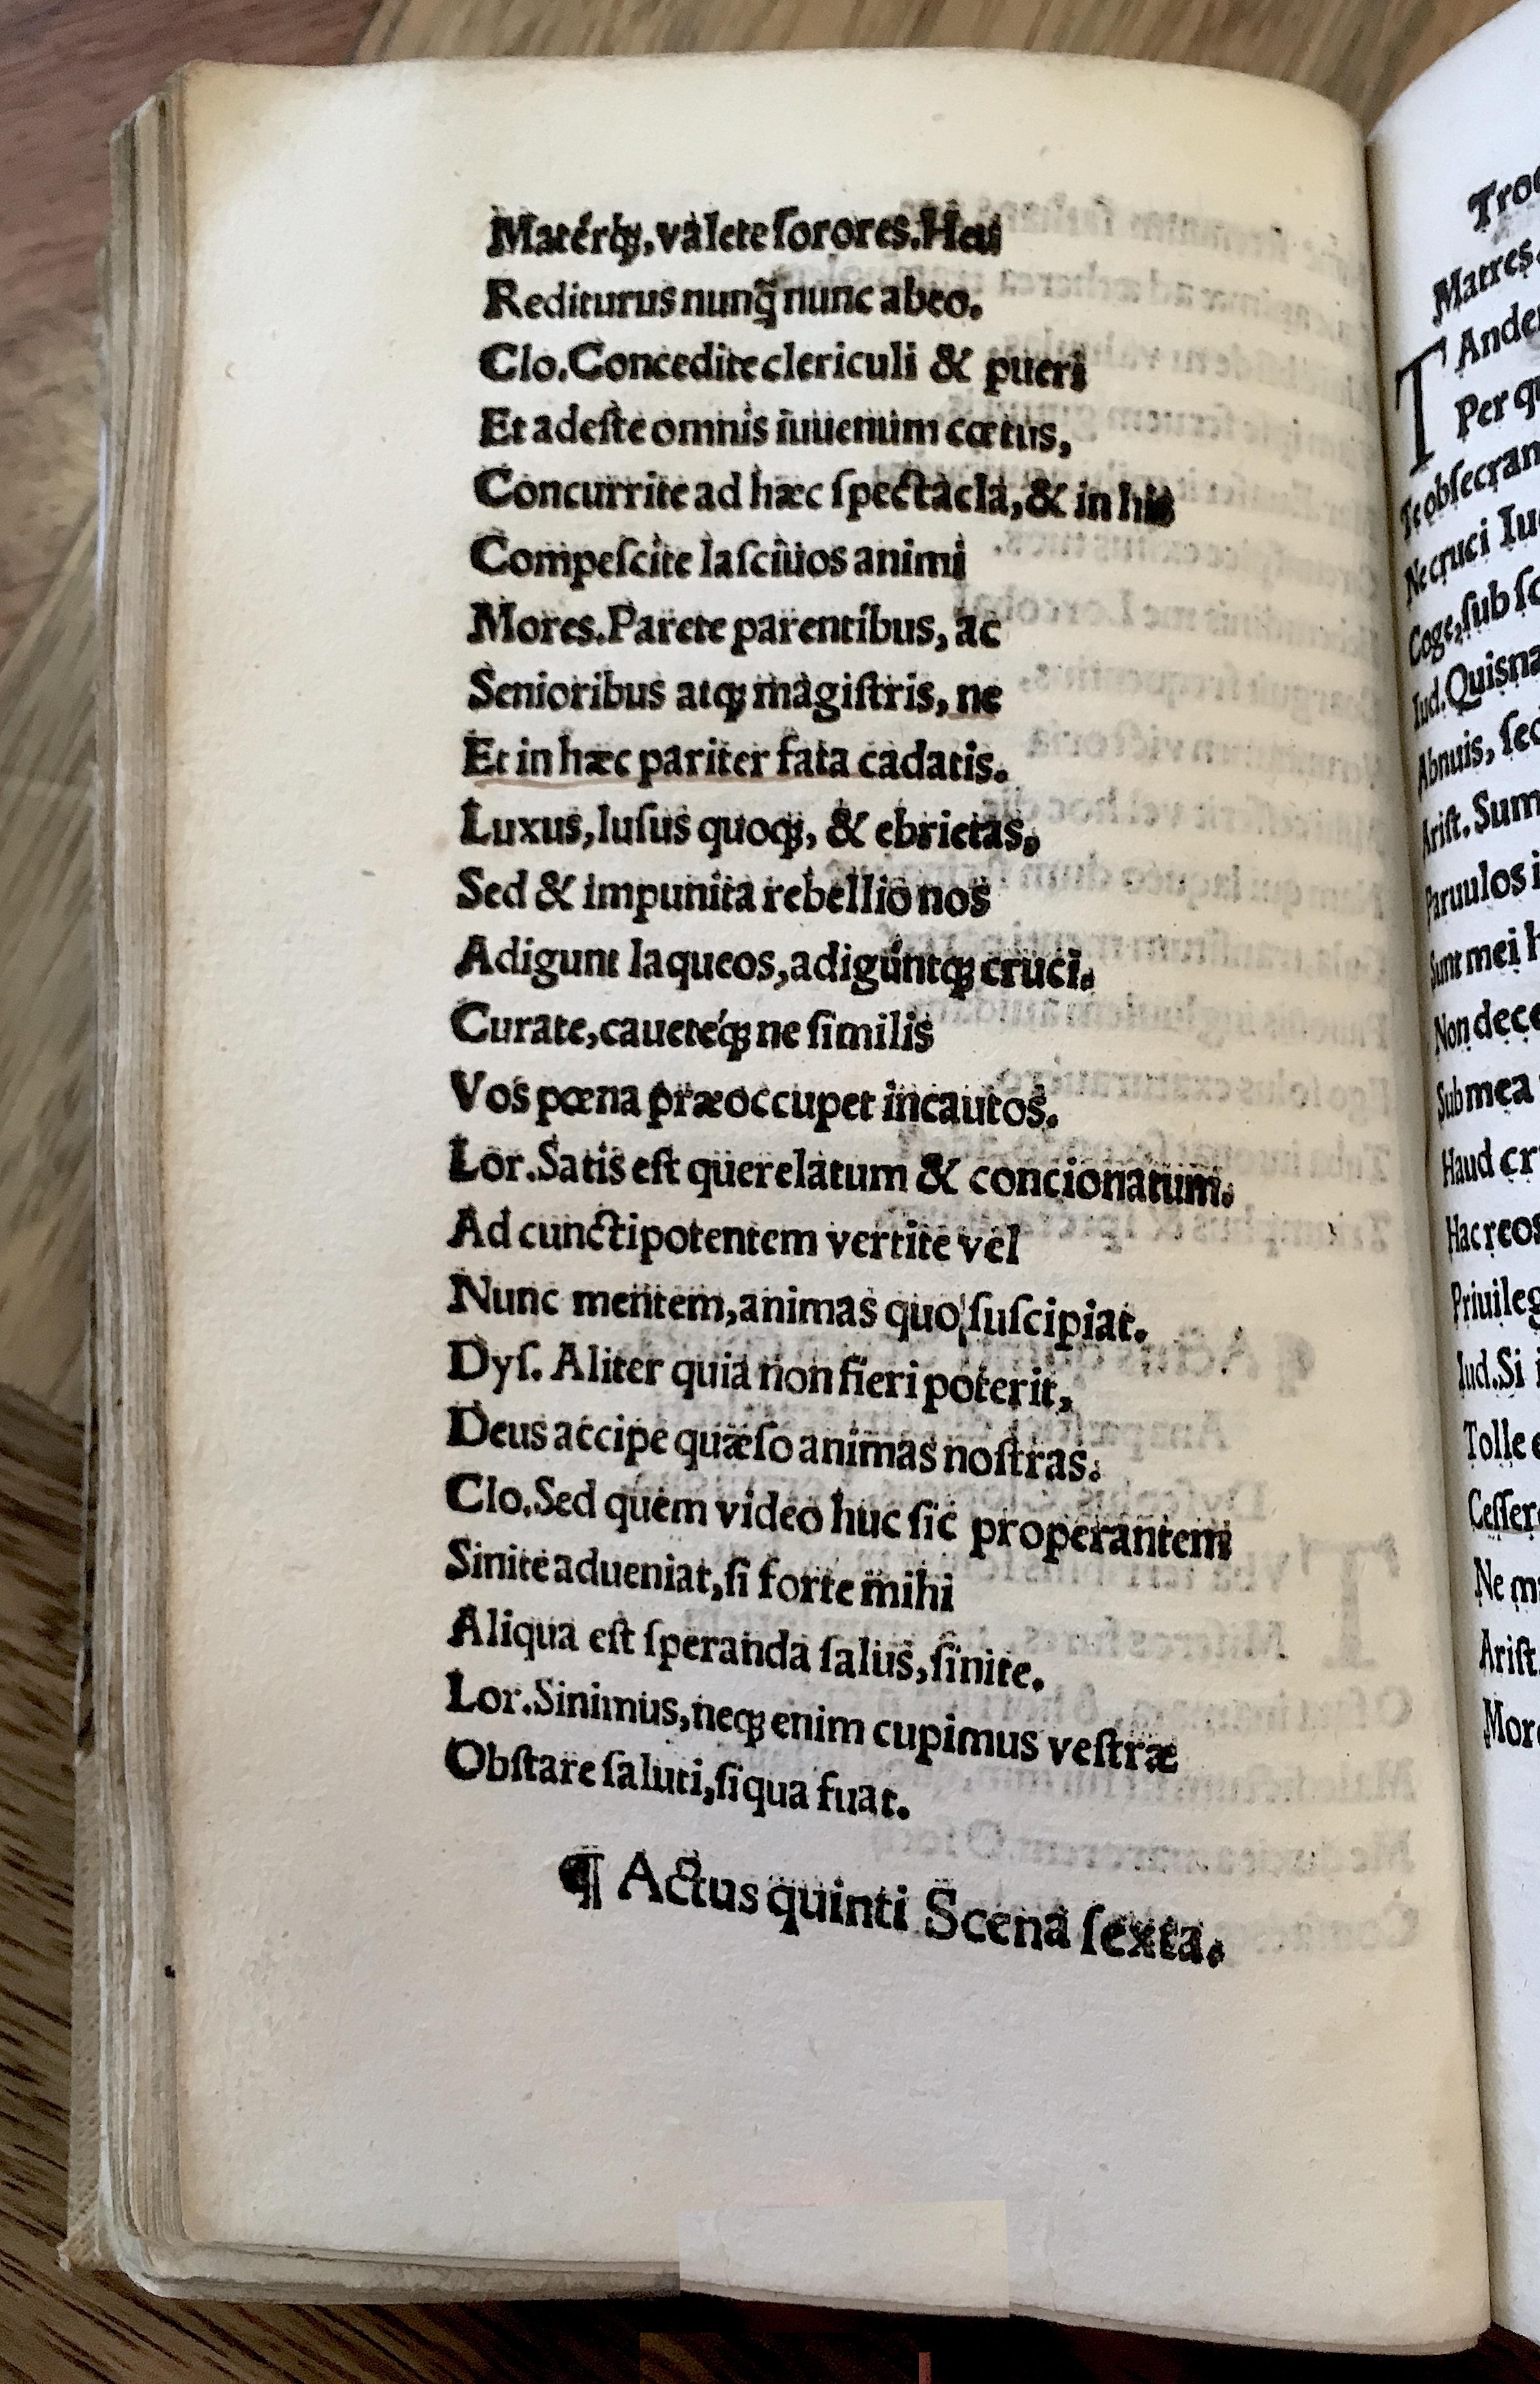 Matérq;, valete ſorores. Heu
Rediturus nunq̃ nunc abeo.
Clo. Concedite clericuli & pueri
Et adeſte omnis iuuenum cœtus,
Concurrite ad hæc ſpectacla, & in his
Compeſcite laſciuos animi
Mores. Parete parentibus, ac
Senioribus atq; magiſtris, ne
Et in hæc pariter fata cadatis.
Luxus, luſus quoq;, & ebrietas,
Sed & impunita rebellio nos
Adigunt laqueos, adigúntq; cruci.
Curate, caueteq́; ne ſimilis
Vos pœna præoccupet incautos.
Lor. Satis eſt querelatum & concionatum.
Ad cunctipotentem vertite vel
Nunc mentem, animas quo ſuſcipiat.
Dyſ. Aliter quia non fieri poterit,
Deus accipe quæſo animas noſtras.
Clo. Sed quem video huc ſic properantem
Sinite adueniat, ſi forte mihi
Aliqua eſt ſperanda ſalus, ſinite.
Lor. Sinimus, neq; enim cupimus veſtræ
Obſtare ſaluti, ſiqua fuat.
¶ Actus quinti Scena ſexta.
Matres.
T
Per
Te obſecran
Ne cruci
Coge, ſub
Iud. Quisna
Abnuis,
Ariſt. Sum
Paruulos
Sunt mei
Non dece
Sub mea
Haud
Hac reos
Priuileg
Iud. Si
Tolle
Ceſſer
Ne
Ariſt.
Mor